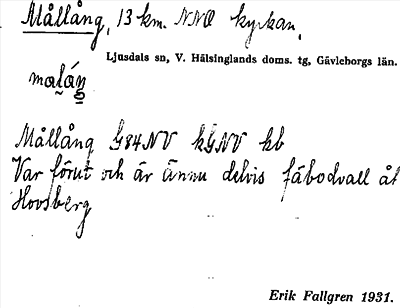 Mållång, 13 km. NNO kyrkan.
Ljusdals sn, V. Hälsinglands doms. tg, Gävleborgs län.
maláŋ
Mållång G84NV kGNV kb
Var förut och är ännu delvis fäbodvall åt
Hovsberg
Erik Fallgren 1931.